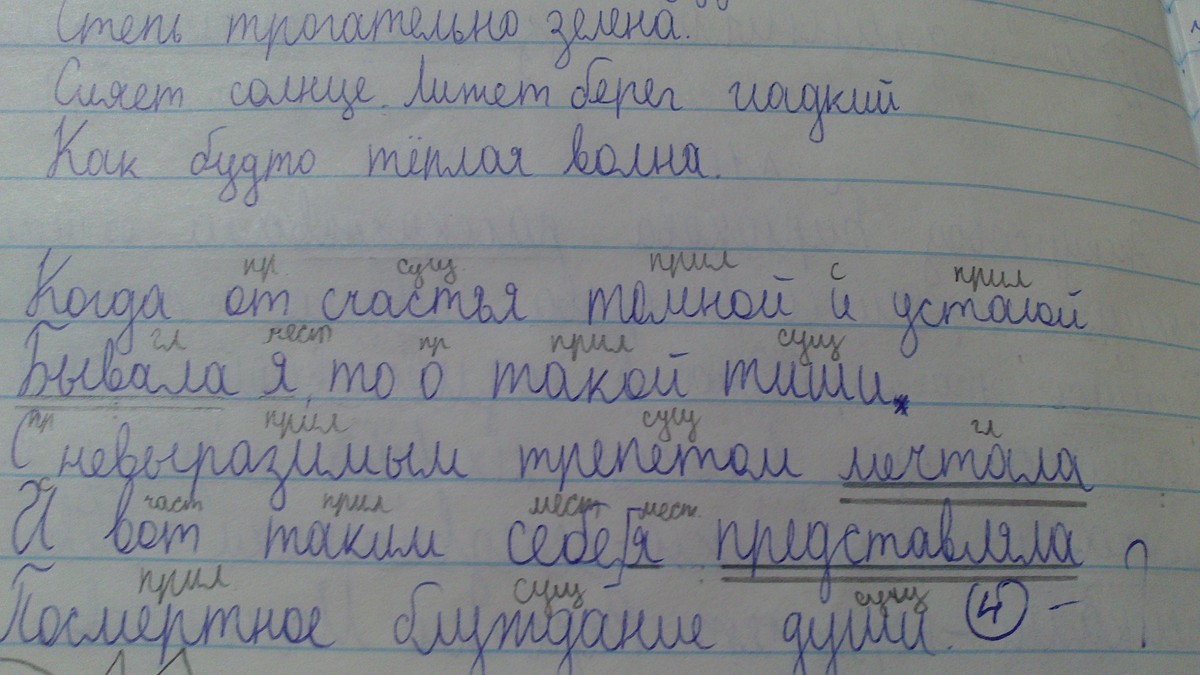 Степь трогательно зелена.
Сияет солнце. Лижет берег гладкий
Как будто тёплая волна.
пр. сущ прил с прил
Когда от счастья томной и усталой
гл мест пр прил сущ
Бывала я, то о такой тиши
пр прил сущ гл
С невыразимым трепетом мечтала
с част прил мест мест.
И вот таким себе я представляла
прил сущ сущ
Посмертное блуждание души. (4) – ?